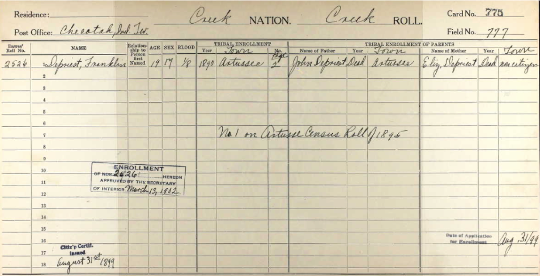 Residence: Creek NATION. Creek ROLL. Card No. 775
Post Office: Checotah, Ind. Ter. Field No. 777
Dawes' Roll No. NAME Relationship to Person First Named AGE SEX BLOOD TRIBAL ENROLLMENT Year Town Page TRIBAL ENROLLMENT OF PARENTS Name of Father Year Town Name of Mother Year Town
2526 1 Depriest, Franklin 19 M 1/8 1890 Artussee 2 John Depriest Dead Artussee Eliz. Depriest Dead non citizen
2
3
4
5
6
7 No. 1 on Artusse Census Roll of 1895
8
9
10
11
12
13
14
15
16
17
18
ENROLLMENT
OF NOS. 2526 HEREON
APPROVED BY THE SECRETARY
OF INTERIOR March 13, 1902
Date of Application
for Enrollment. Aug. 31/99
Citiz'p Certif.
Issued
August 31st 1899